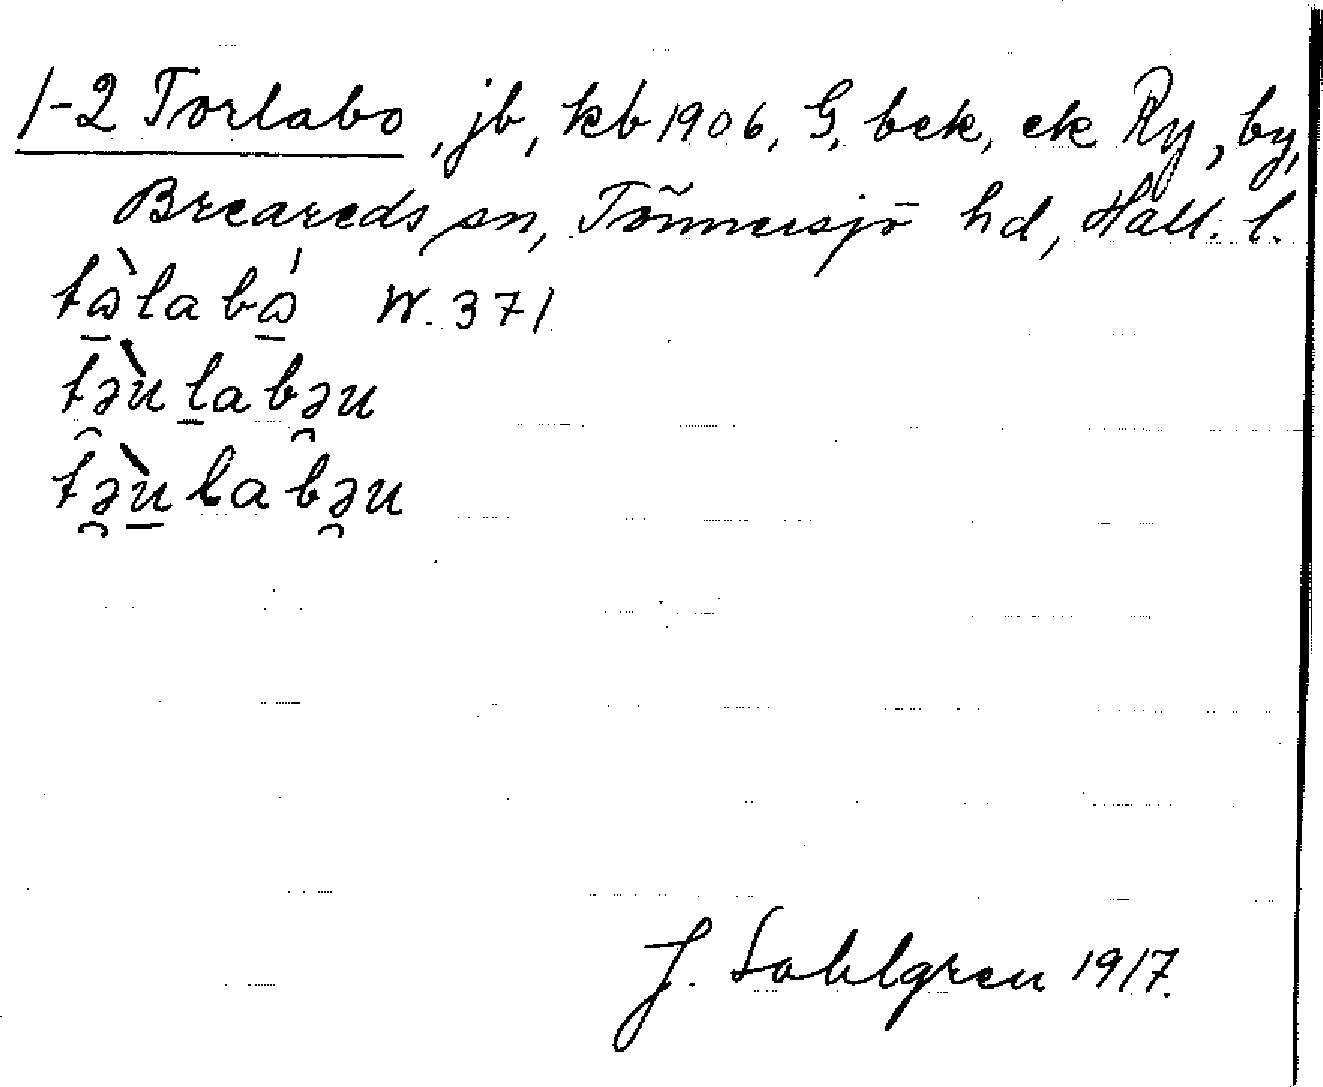 1-2 Torlabo, jb, kb 1906, G, bek, ek Ry, by,
Breareds sn, Tönnersjö hd, Hall. l.
tɷ̀labɷ́ W. 371
tə̯̀ulabə̯u
tə̯̀u̱labə̯u
J. Sahlgren 1917.